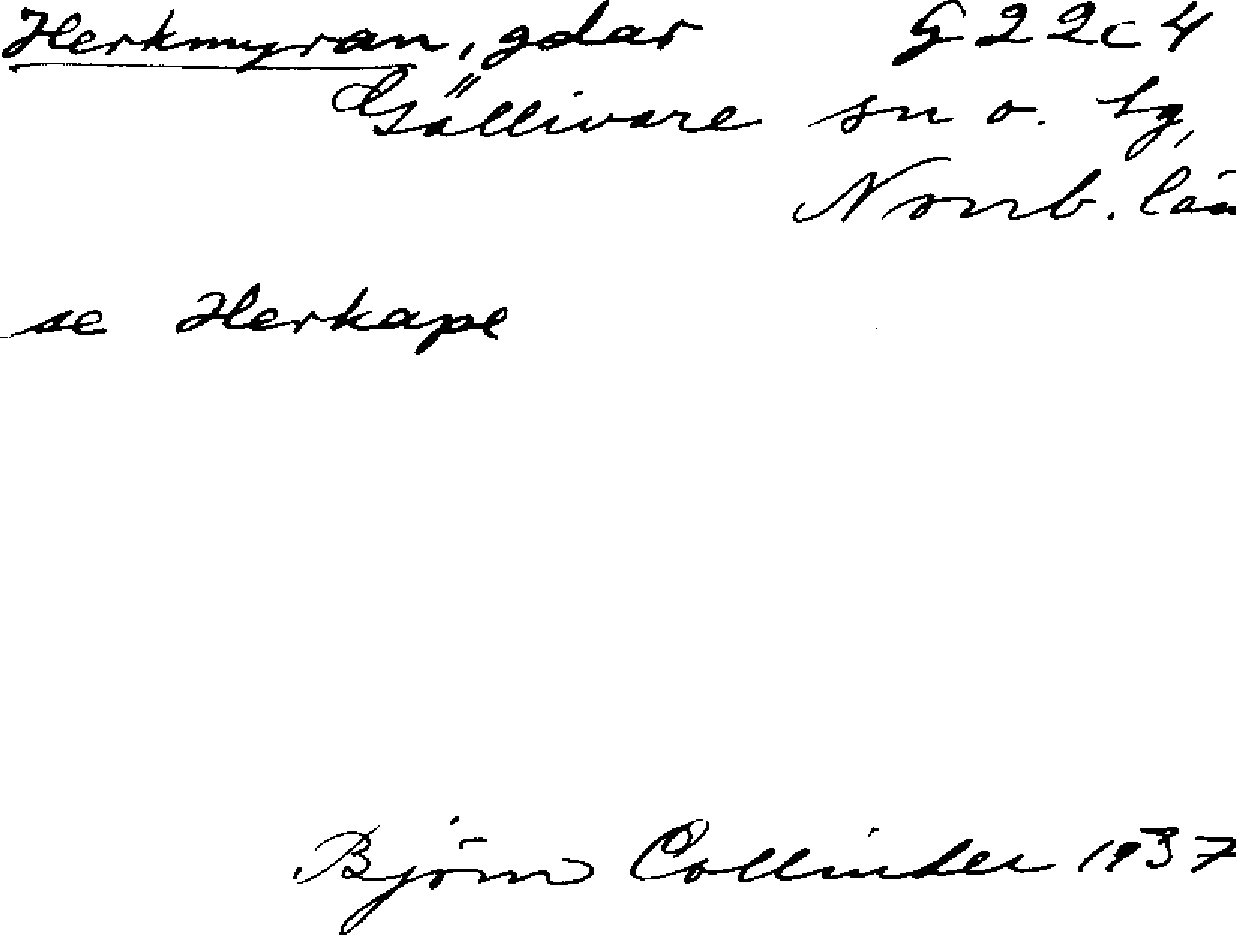 Herkmyran, gdar G22c4
Gällivare sn o. tg,
Norrb. län
se Herkape
Björn Collinder 1937